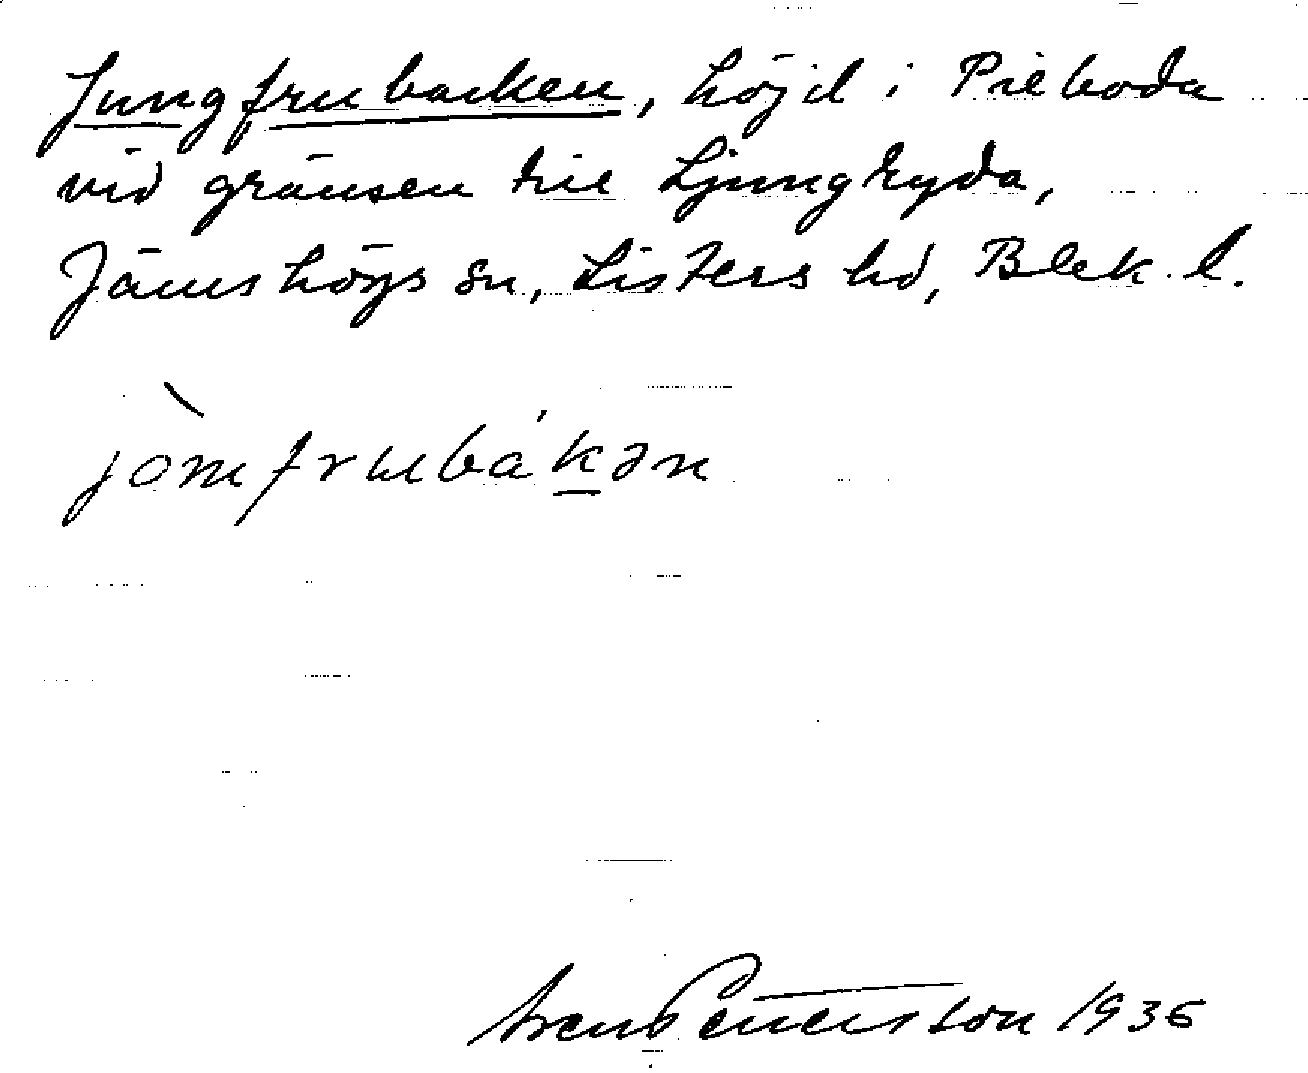 Jungfrubacken, höjd i Pieboda
vid gränsen till Ljungryda,
Jämshögs sn, Listers hd, Blek. l.
jòmfrubákən
Pettersson 1936